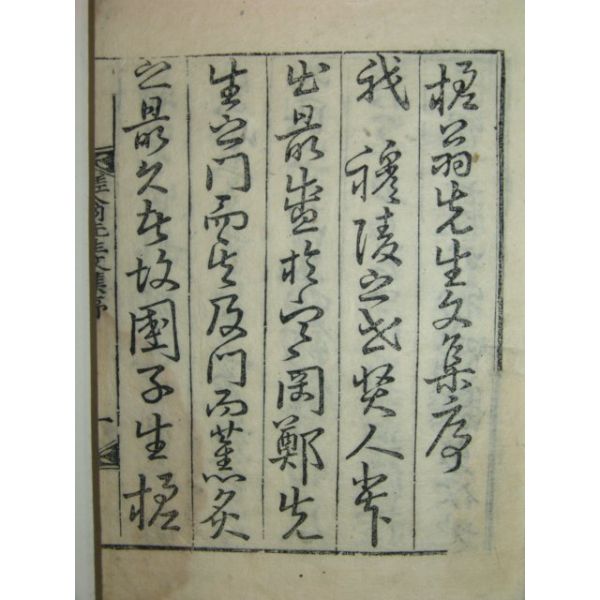 翁先生文集序
我 穆陵之世賢人輩
出最盛於寒岡鄭先
生之門而其及門而薰炙
之最久者故國子生
翁先生文集序
一